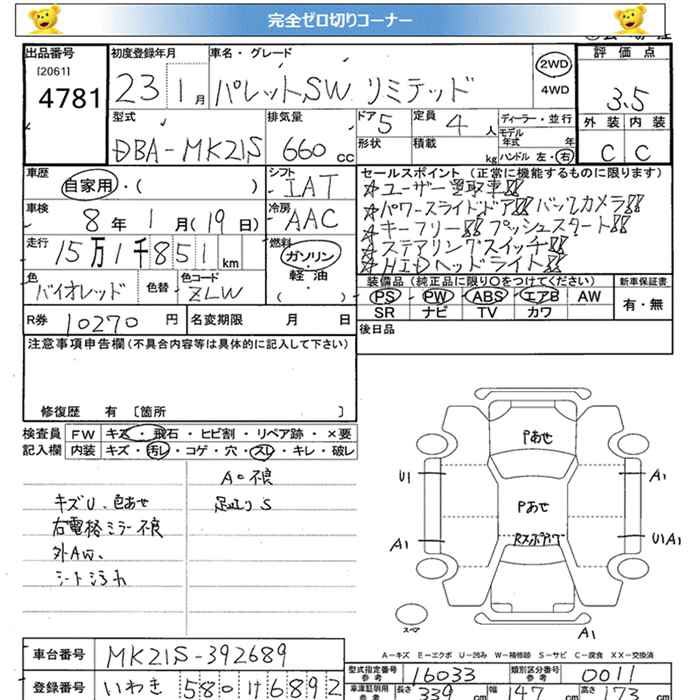 完全ゼロ切りコーナー
出品番号 初度登録年月 車名・グレード 評価点
[2061] 4781
23 1月 パレットSW リミテッド 2WD 4WD 3.5
型式 排気量 ドア 定員 ディーラー・並行 外装 内装
DBA-MK21S 660cc 5 4人 C C
形状 積載 kg モデル年式 年 ハンドル 左・右
車歴 シフト セールスポイント (正常に機能するものに限ります)
自家用・( ) IAT
☆ユーザー買取車!!
☆パワースライドドア!! バックカメラ!!
☆キーフリー!! プッシュスタート!!
☆ステアリングスイッチ!!
☆HIDヘッドライト!!
車検 冷房
8年1月(19日) AAC
走行 燃料
15万1千851km ガソリン・軽油 ( ・ )
色 色替 色コード
バイオレッド ZLW
装備品 (純正品に限り○をつけてください) 新車保証書
PS PW ABS エアB AW 有・無
SR ナビ TV カワ
R券 10270円 名変期限 月 日
後日品
注意事項申告欄(不具合内容等は具体的に記入して下さい)
修復歴 有 [箇所 ]
検査員 FW キズ・飛石・ヒビ割・リペア跡・×要
記入欄 内装 キズ・汚レ・コゲ・穴・スレ・キレ・破レ
キズU、色あせ
右電格ミラー不良
外AW、
シート汚れ
不良
足廻りS
Pあせ
Pあせ
U1 A1
A1 U1A1
A1
スペア
A-キズ E-エクボ U-凹み W-補修跡 S-サビ C-腐食 XX-交換済
車台番号 MK21S-392689
登録番号 いわき 580 け 6892
型式指定番号 参考 16033 類別区分番号 参考 0011
車庫証明用 参考 長さ 339cm 幅 147cm 高さ 173cm